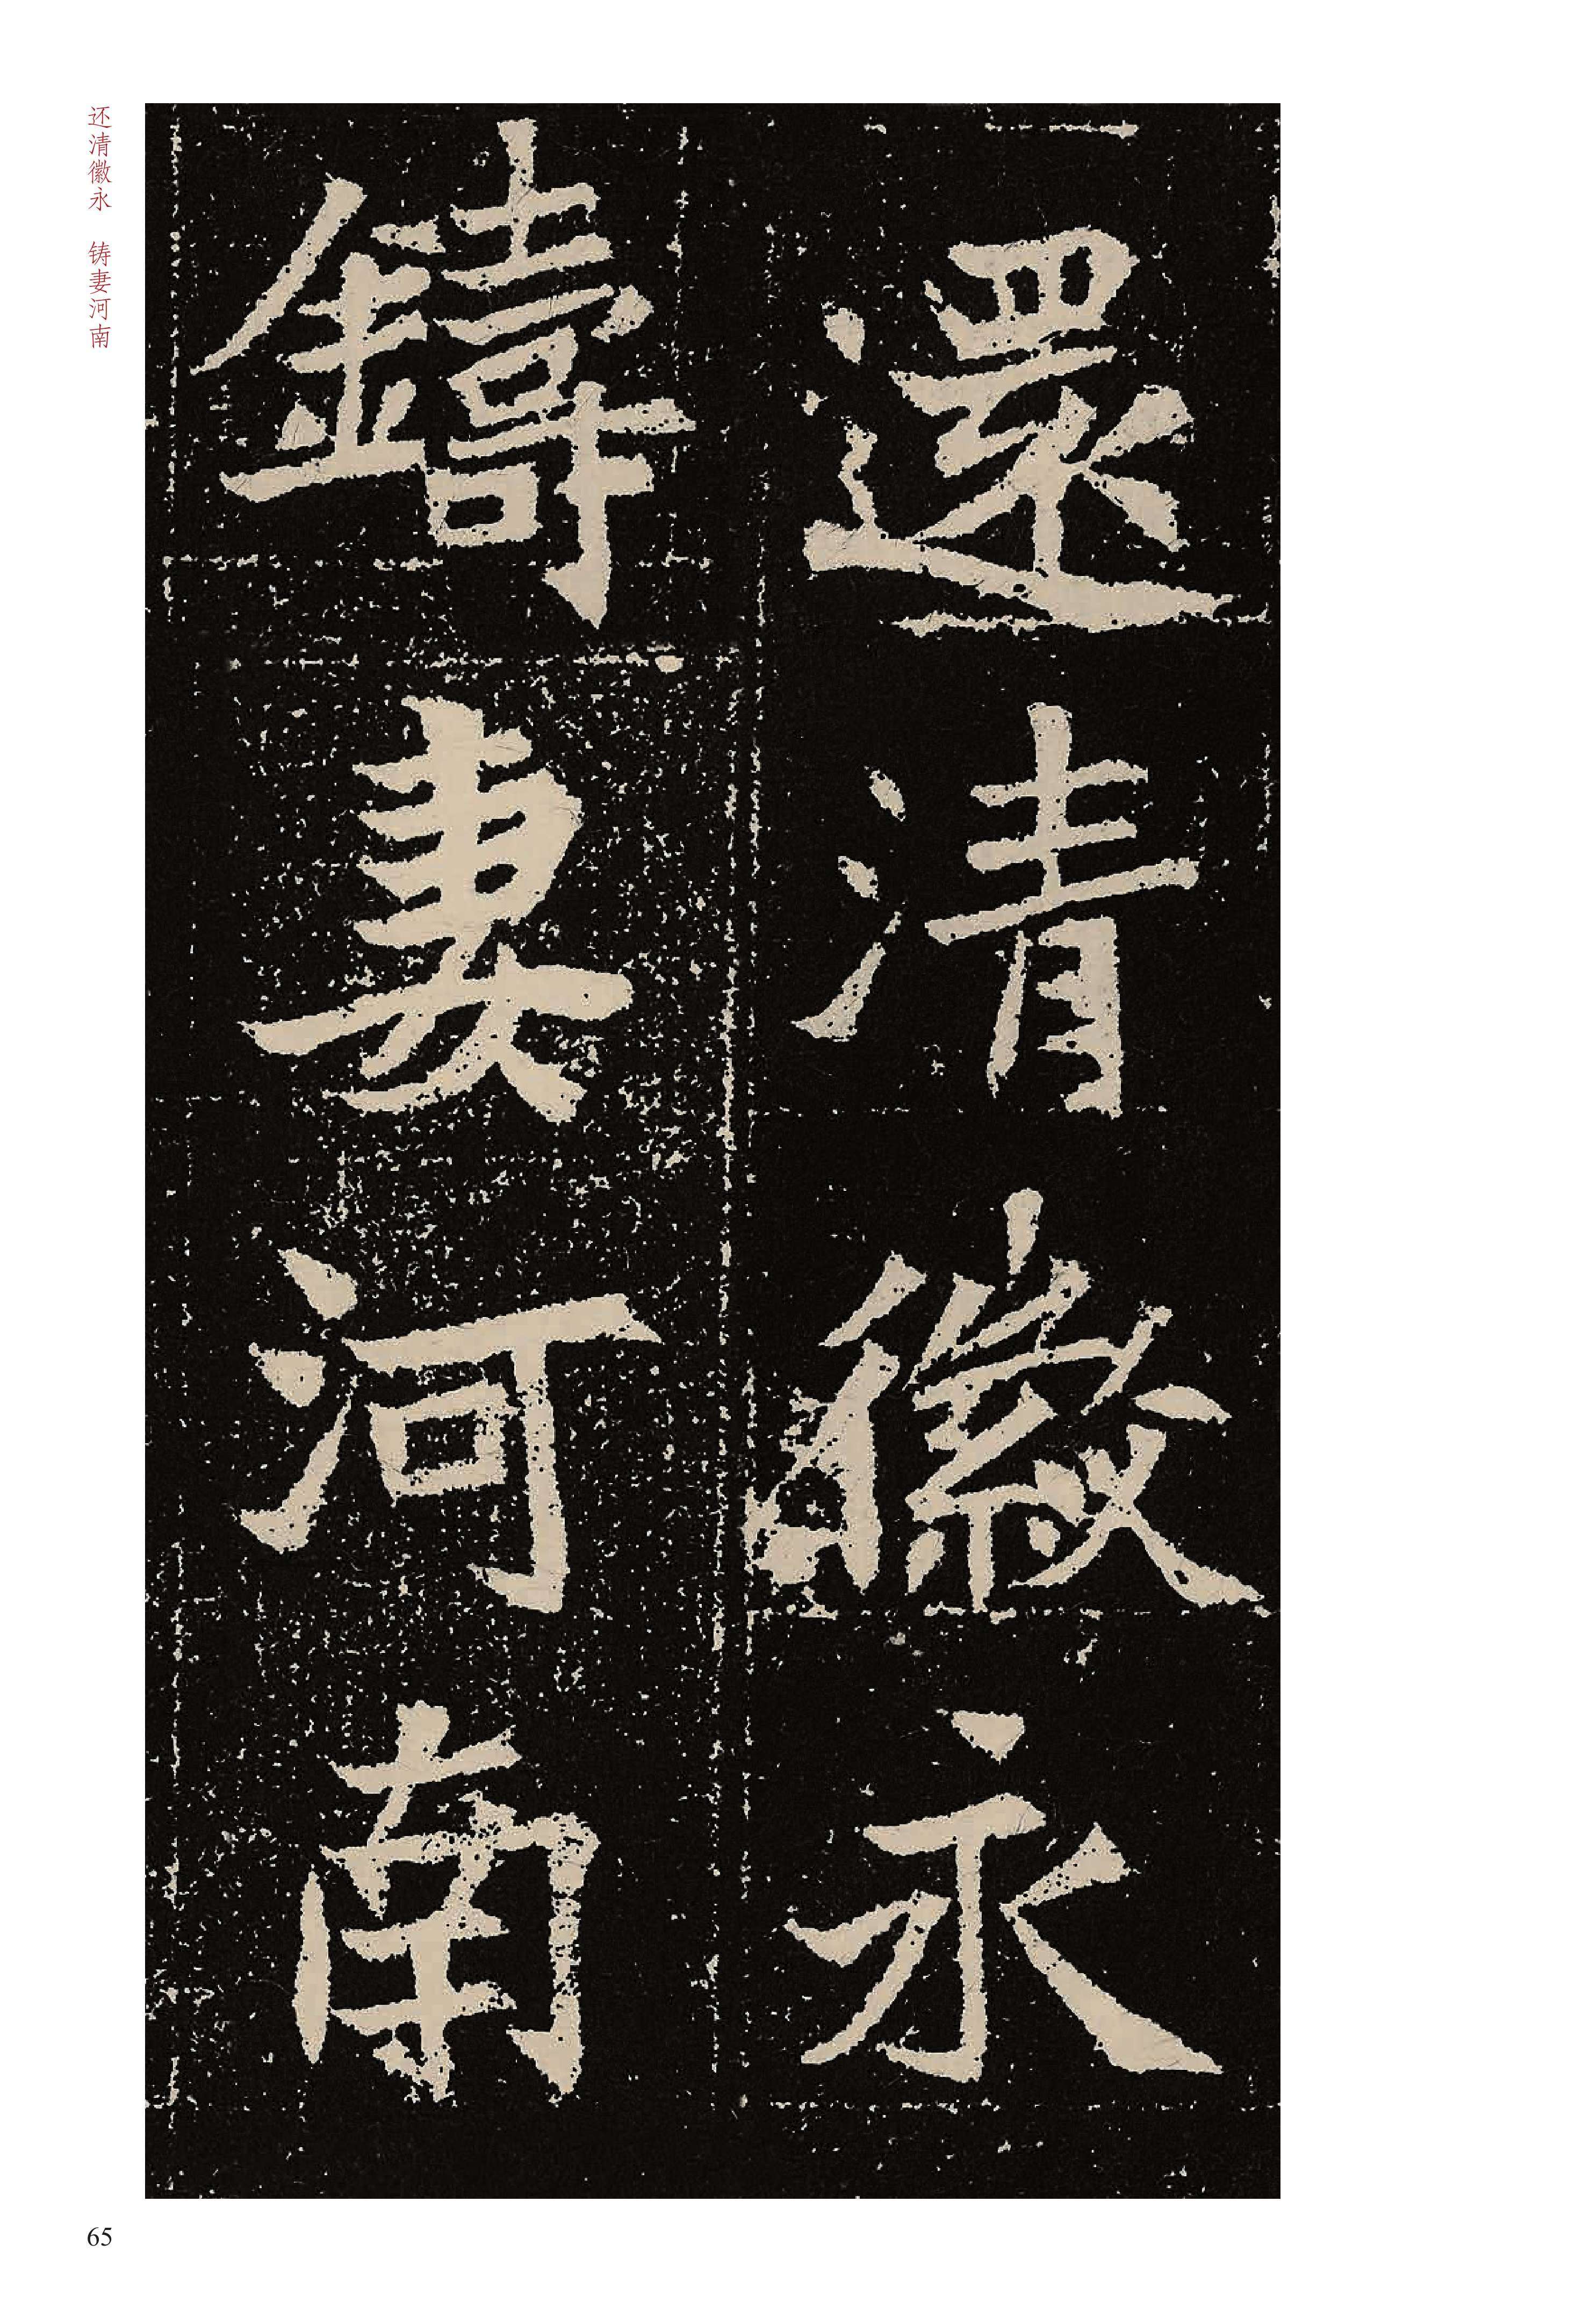 還清徽永
鑄妻河南
还清徽永 铸妻河南
65